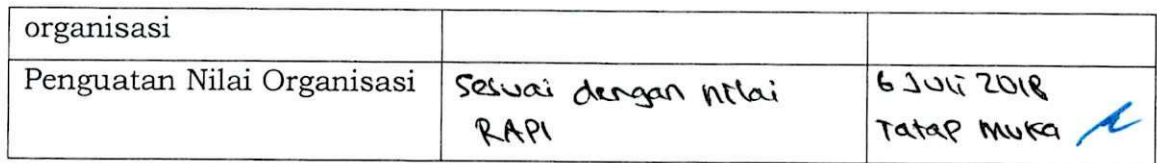 organisasi
Penguatan Nilai Organisasi
Sesuai dengan nilai
RAPI
6 Juli 2018
Tatap Muka